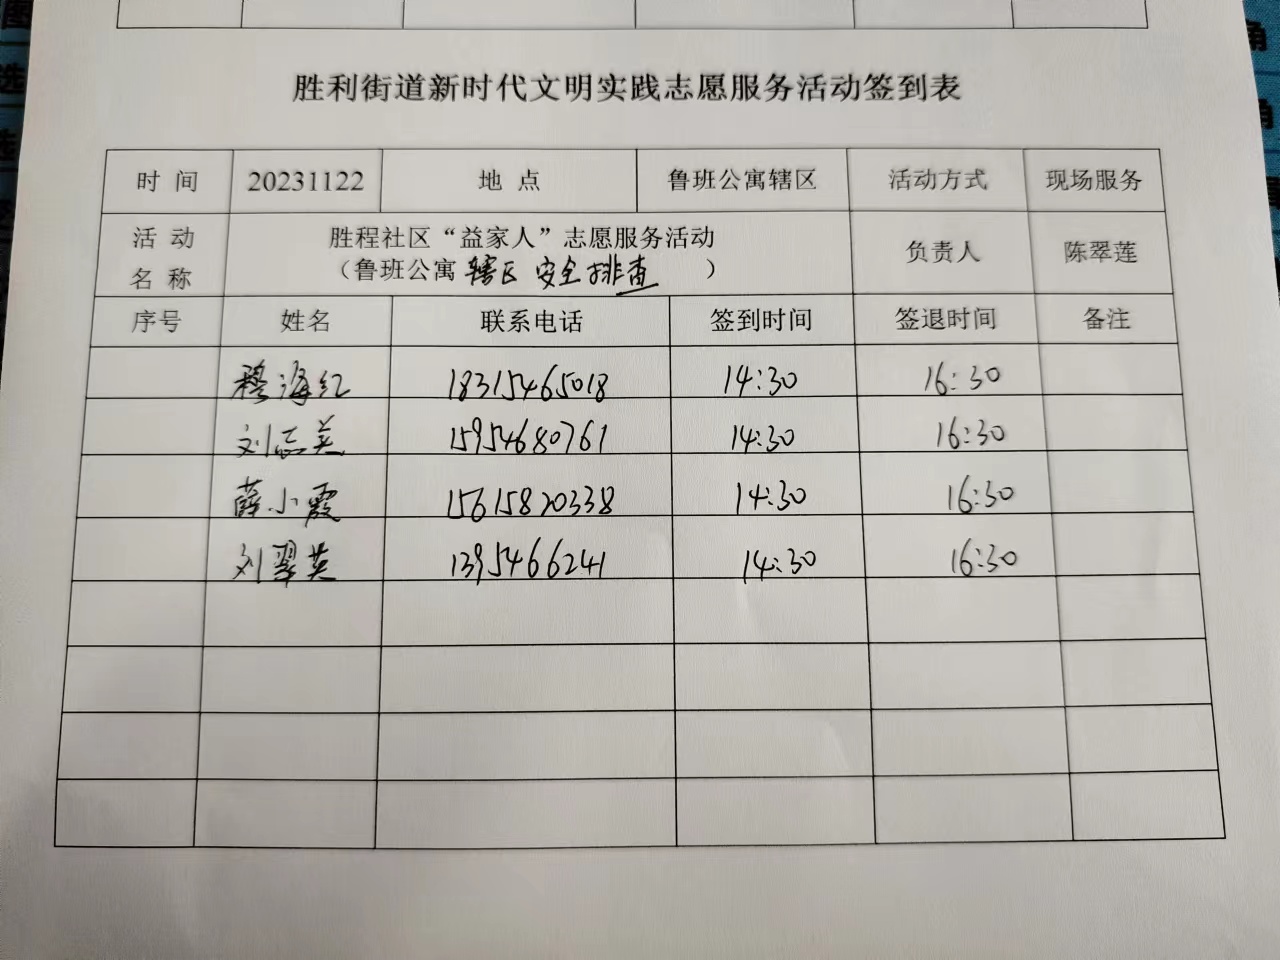 胜利街道新时代文明实践志愿服务活动签到表
时 间 20231122 地 点 鲁班公寓辖区 活动方式 现场服务
活 动 名 称 胜程社区“益家人”志愿服务活动 负责人 陈翠莲
（鲁班公寓 辖区 安全排查 ）
序号 姓名 联系电话 签到时间 签退时间 备注
穆海红 18315465018 14:30 16:30
刘志英 15954680761 14:30 16:30
薛小霞 15615820338 14:30 16:30
刘翠英 1395466241 14:30 16:30